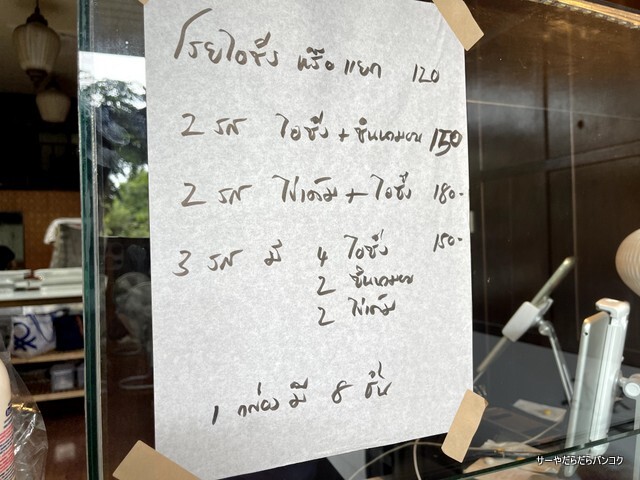 โรยไอซิ่ง หรือ แยก 120
2 รส ไอซิ่ง + ชินนามอน 150
2 รส ไข่เค็ม + ไอซิ่ง 180.-
3 รส มี 4 ไอซิ่ง 150.-
2 ชินนามอน
2 ไข่เค็ม
1 กล่อง มี 8 ชิ้น
サーやだらだらバンコク